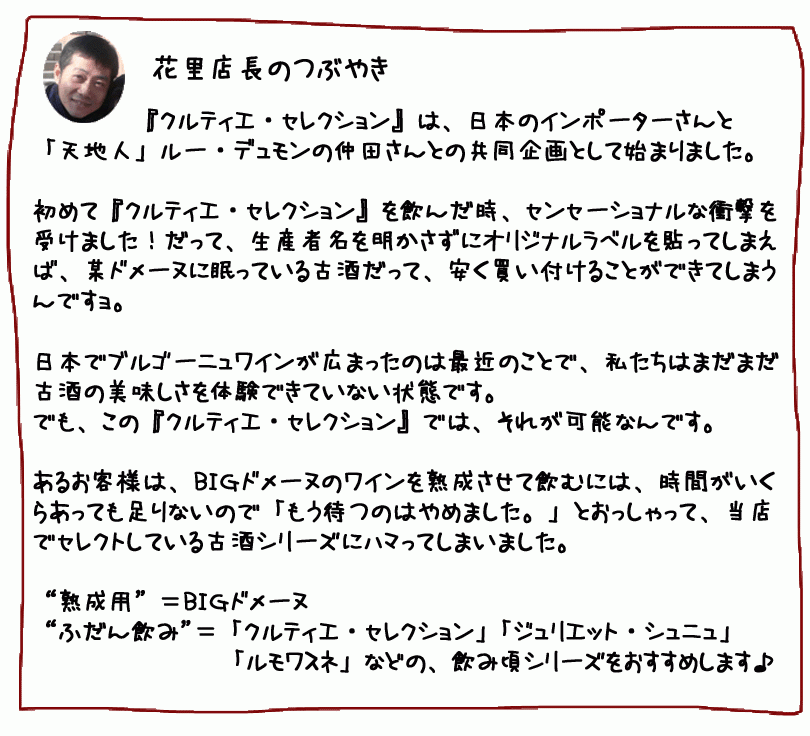 花里店長のつぶやき
『クルティエ・セレクション』は、日本のインポーターさんと
「天地人」ルー・デュモンの仲田さんとの共同企画として始まりました。
初めて『クルティエ・セレクション』を飲んだ時、センセーショナルな衝撃を
受けました！だって、生産者名を明かさずにオリジナルラベルを貼ってしまえ
ば、某ドメーヌに眠っている古酒だって、安く買い付けることができてしまう
んですョ。
日本でブルゴーニュワインが広まったのは最近のことで、私たちはまだまだ
古酒の美味しさを体験できていない状態です。
でも、この『クルティエ・セレクション』では、それが可能なんです。
あるお客様は、BIGドメーヌのワインを熟成させて飲むには、時間がいく
らあっても足りないので「もう待つのはやめました。」とおっしゃって、当店
でセレクトしている古酒シリーズにハマってしまいました。
“熟成用”＝BIGドメーヌ
“ふだん飲み”＝「クルティエ・セレクション」「ジュリエット・シュニュ」
「ルモワスネ」などの、飲み頃シリーズをおすすめします♪